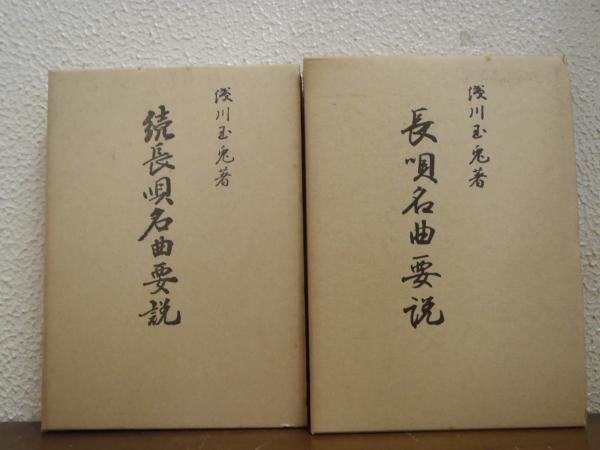 浅川玉兎著
長唄名曲要説
浅川玉兎著
続長唄名曲要説